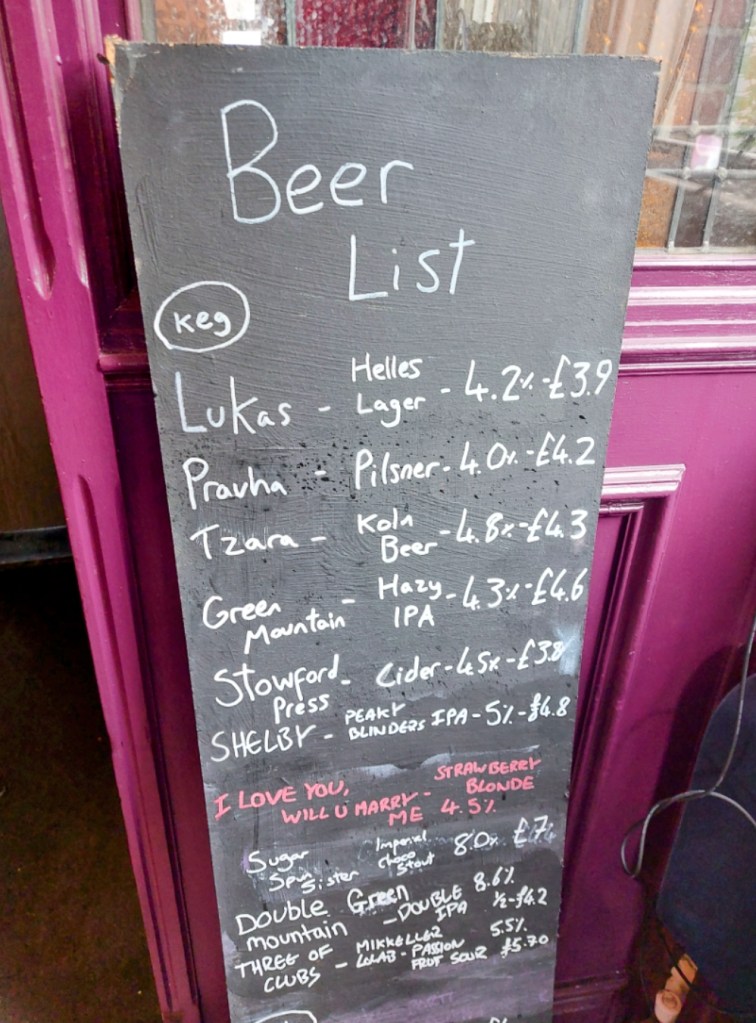 Beer
List
Keg
Lukas - Helles Lager - 4.2% - £3.9
Pravha - Pilsner - 4.0% - £4.2
Tzara - Koln Beer - 4.8% - £4.3
Green Mountain - Hazy IPA - 4.3% - £4.6
Stowford Press - Cider - 4.5% - £3.8
SHELBY - PEAKY BLINDERS IPA - 5% - £4.8
I LOVE YOU, WILL U MARRY ME - STRAWBERRY BLONDE 4.5%
Sugar Spun Sister Imperial Choco Stout 8.0% £7
DOUBLE Green mountain - DOUBLE IPA 8.6% ½-£4.2
THREE OF CLUBS - MIKKELLER - PASSION FRUT SOUR 5.5% £5.70